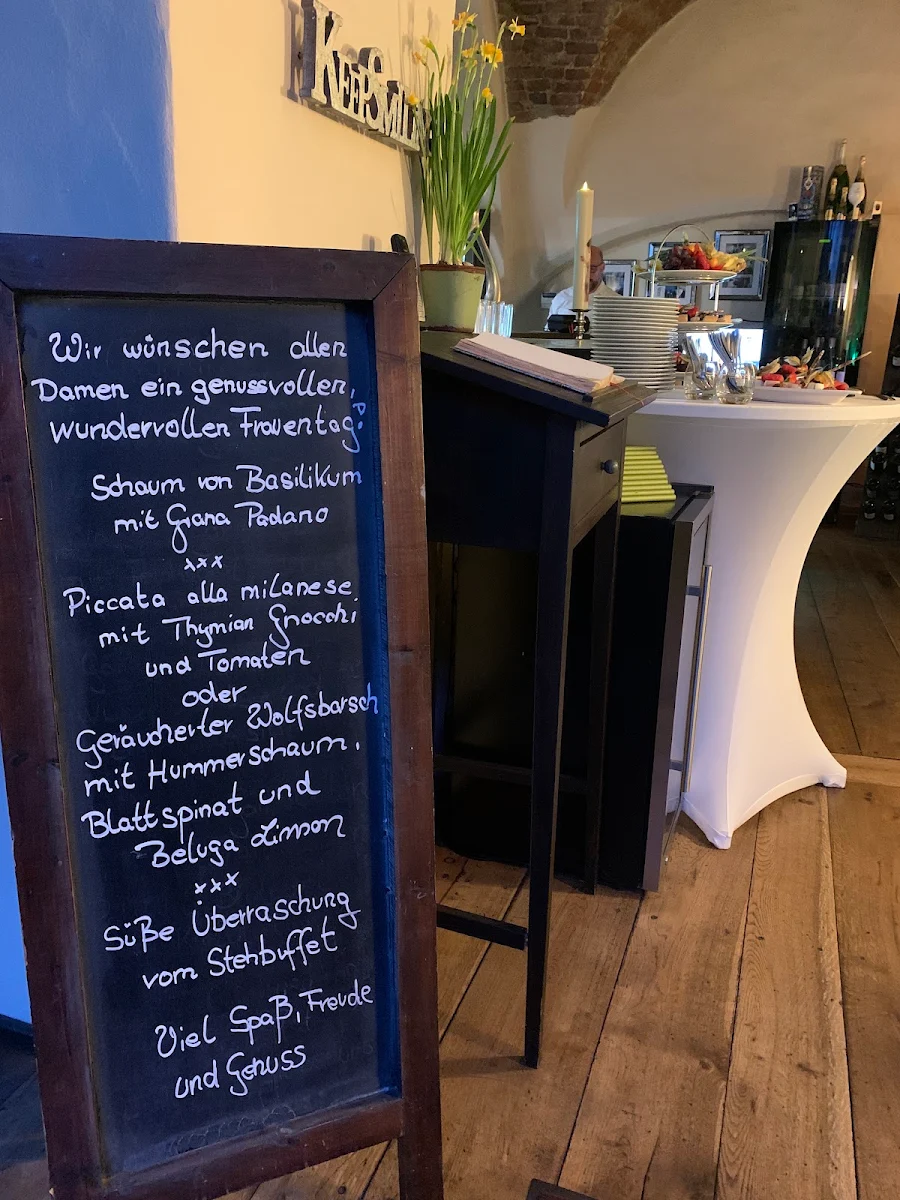 KEEP SMILIN
Wir wünschen allen
Damen ein genussvollen,
wundervollen Frauentag
Schaum von Basilikum
mit Grana Padano
xxx
Piccata alla milanese
mit Thymian Gnocchi
und Tomaten
oder
Geräucherter Wolfsbarsch
mit Hummerschaum,
Blattspinat und
Beluga Linson
xxx
Süße Überraschung
vom Stehbuffet
Viel Spaß, Freude
und Genuss